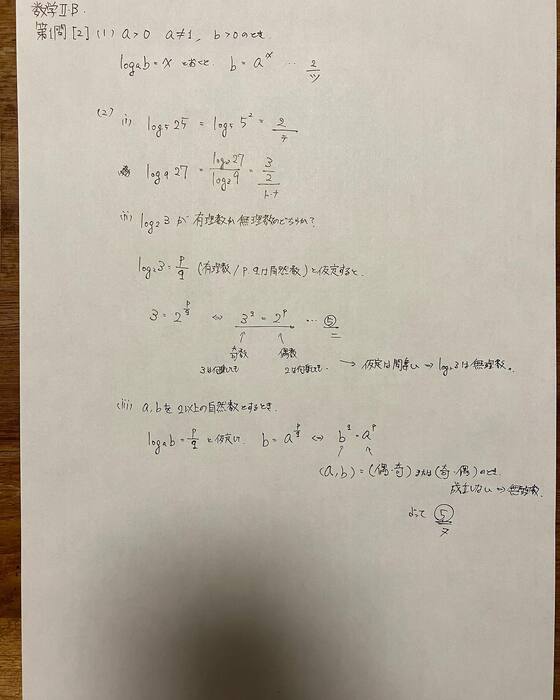 数学Ⅱ·B.
第1問[2] (1) a>0 a≠1, b>0のとき.
log_a b = x とおくと. b = a^x … 2/ツ
(2) (i) log_5 25 = log_5 5^2 = 2/テ
log_9 27 = log_3 27 / log_3 9 = 3/2 / ト.ナ
(ii) log_2 3 が 有理数か無理数のどちらか?
log_2 3 = p/q (有理数/p.qは自然数)と仮定すると.
3 = 2^(p/q) ⇔ 3^q = 2^p … ⑤/ニ
↑ ↑
奇数 偶数
3は何乗しても 2は何乗しても. → 仮定は間違い → log_2 3 は無理数。
(iii) a,bを2以上の自然数とするとき.
log_a b = p/q と仮定し. b = a^(p/q) ⇔ b^q = a^p
↑ ↑
(a,b) = (偶·奇) または (奇·偶) のとき.
成立しない → 無理数.
よって ⑤/ヌ